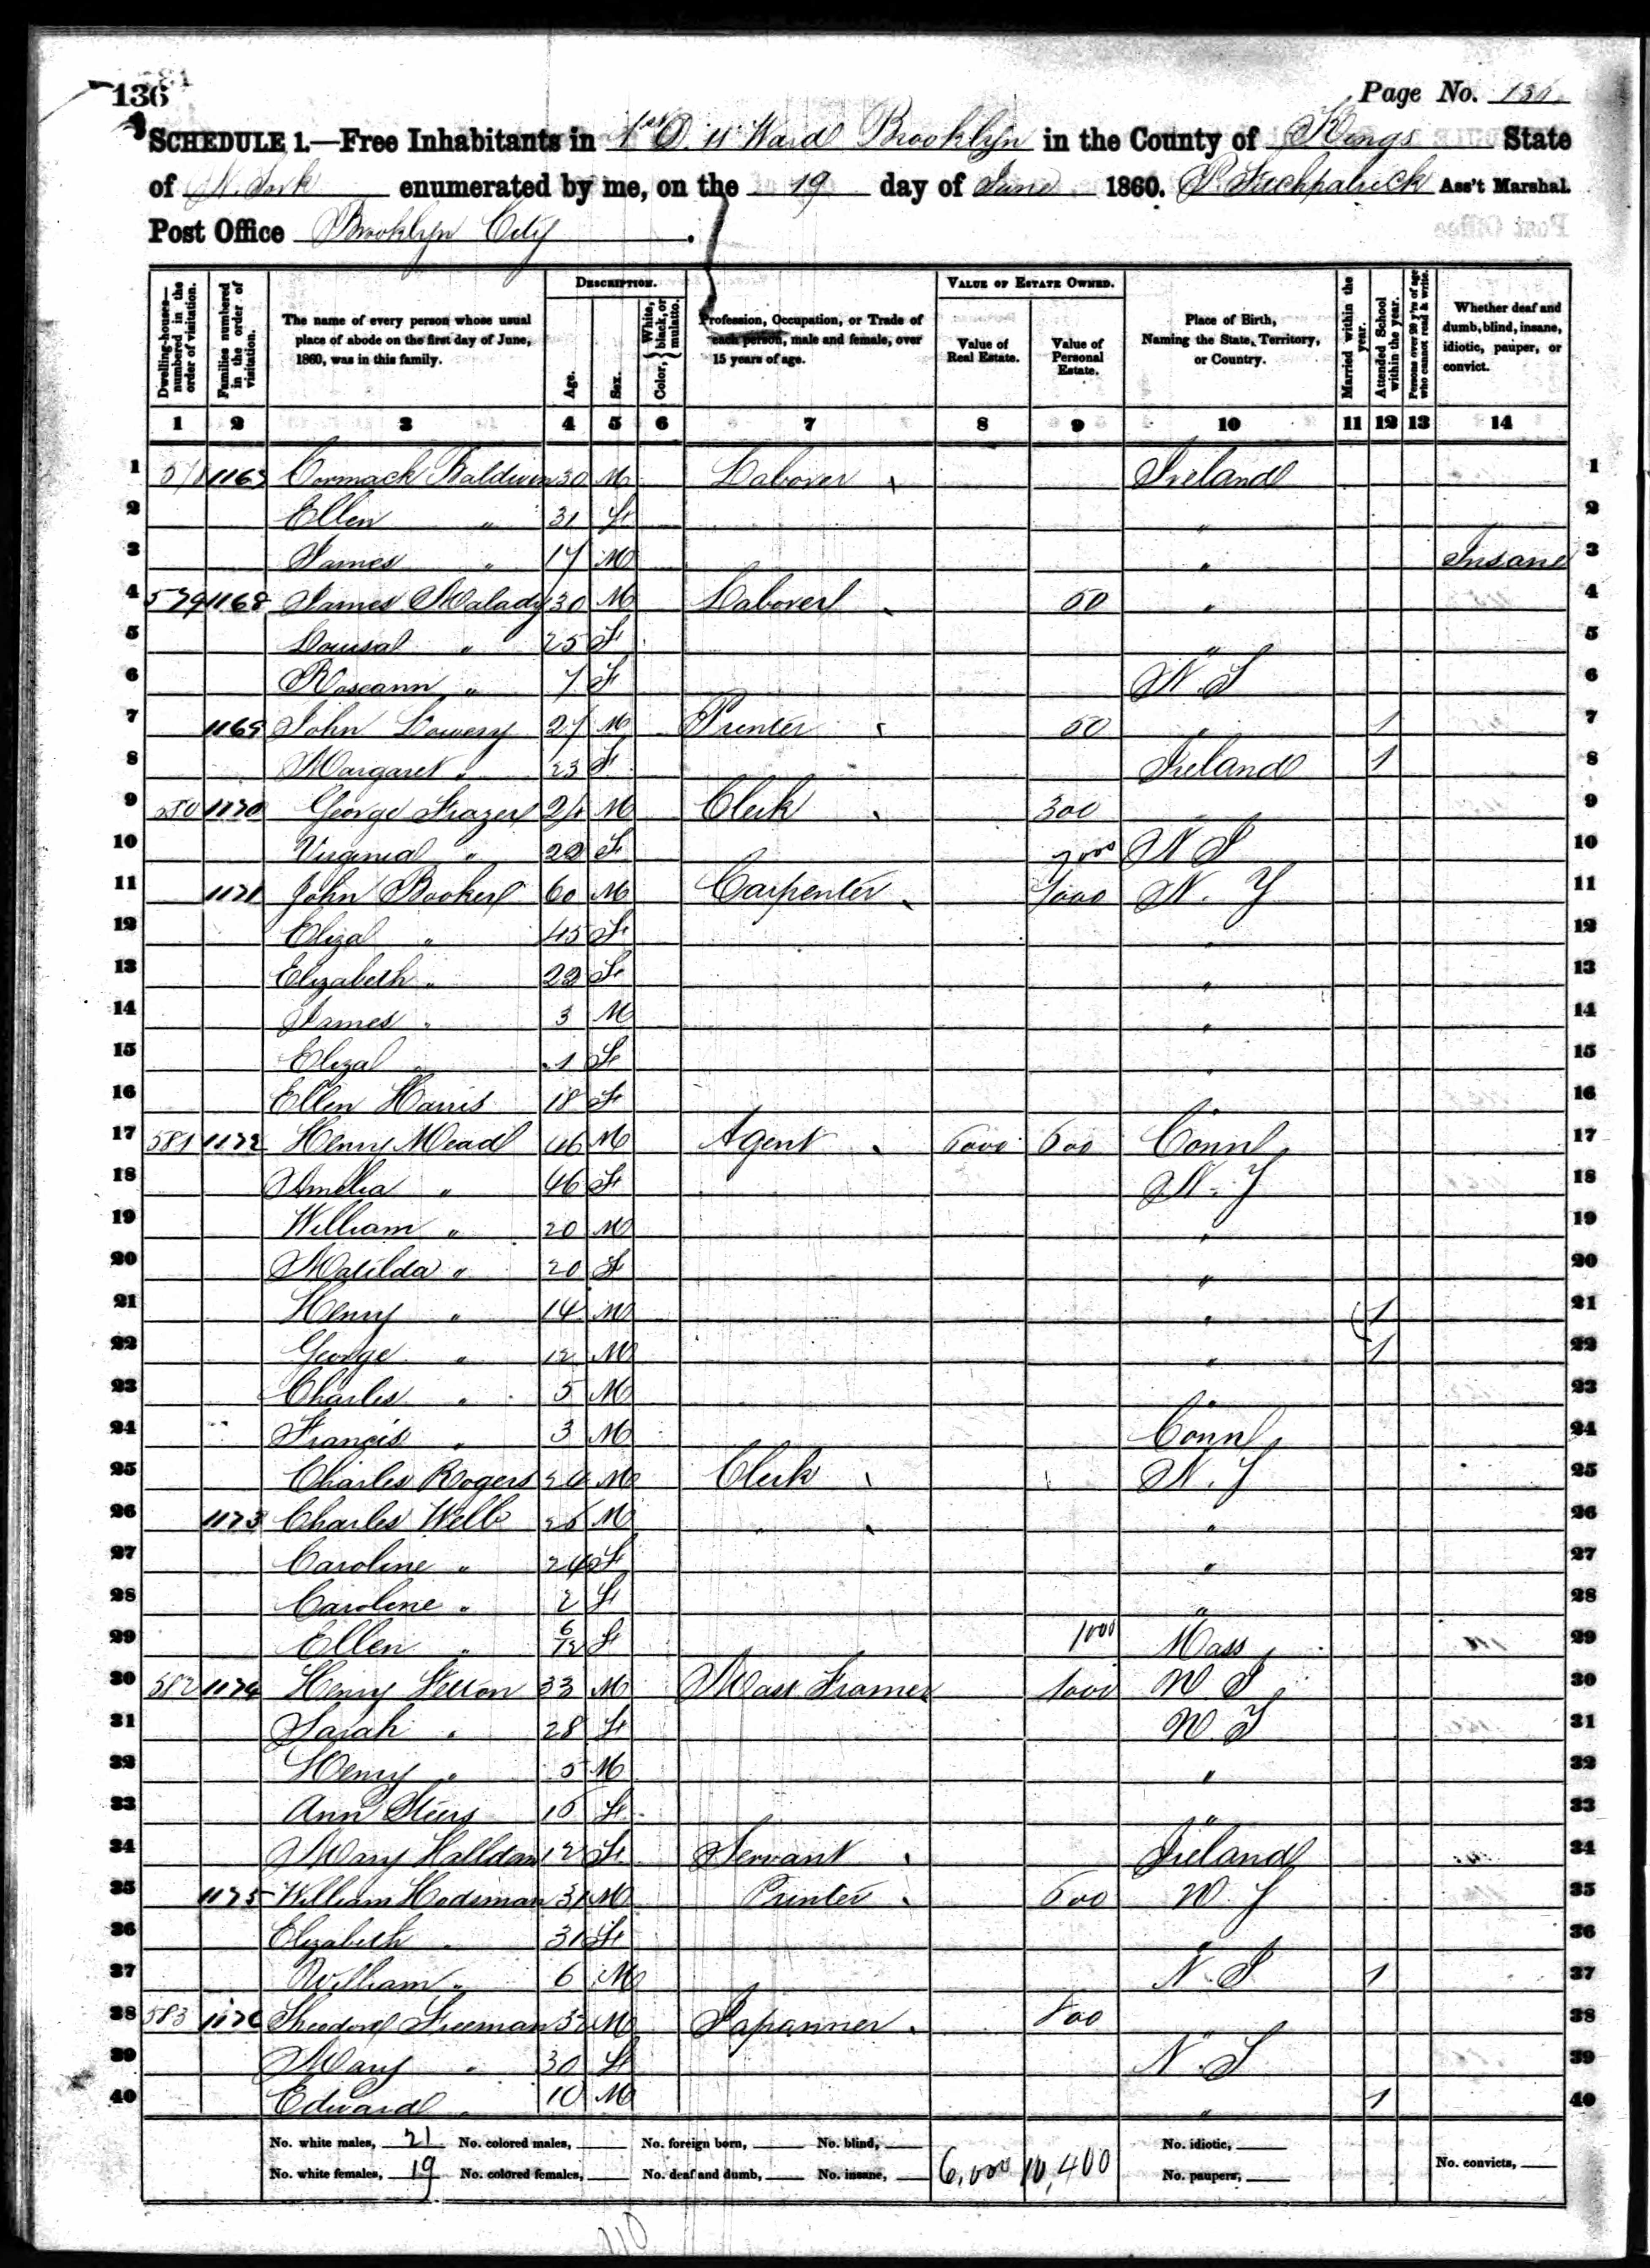 136
Page No. 136
SCHEDULE 1.—Free Inhabitants in 1st D. 11 Ward Brooklyn in the County of Kings State
of N. York enumerated by me, on the 19 day of June 1860. Ass't Marshal.
Post Office Brooklyn City
Dwelling-houses—numbered in the order of visitation.
Families numbered in the order of visitation.
The name of every person whose usual place of abode on the first day of June, 1860, was in this family.
DESCRIPTION.
Age.
Sex.
Color, White, black, or mulatto.
Profession, Occupation, or Trade of each person, male and female, over 15 years of age.
VALUE OF ESTATE OWNED.
Value of Real Estate.
Value of Personal Estate.
Place of Birth, Naming the State, Territory, or Country.
Married within the year.
Attended School within the year.
Persons over 20 y'rs of age who cannot read & write.
Whether deaf and dumb, blind, insane, idiotic, pauper, or convict.
1 2 3 4 5 6 7 8 9 10 11 12 13 14
1 Cormack Baldwin 30 M Laborer Ireland 1
2 Ellen " 31 F " 2
3 James " 17 M " Insane 3
4 579 1168 James Malady 30 M Laborer 50 " 4
5 Louisa " 25 F " 5
6 Roseann " 7 F N.Y 6
7 1169 John Lowery 27 M Printer 50 " 1 7
8 Margaret " 23 F Ireland 1 8
9 580 1170 George Frazer M Clerk 300 " 9
10 Virginia " 22 F N Y 10
11 1171 John Booker 60 M Carpenter 1000 N. Y 11
12 Eliza " 45 F " 12
13 Elizabeth " 22 F " 13
14 James " 3 M " 14
15 Eliza " 1 F " 15
16 Ellen Harris 18 F " 16
17 581 1172 Henry Mead 46 M Agent 6000 600 Conn 17
18 Amelia " 46 F N. Y 18
19 William " 20 M " 19
20 Matilda " 20 F " 20
21 Henry " 14 M " 1 21
22 George " 12 M " 1 22
23 Charles " 5 M " 23
24 Francis " 3 M Conn 24
25 Charles Rogers 24 M Clerk N. Y 25
26 1173 Charles Webb 26 M " " 26
27 Caroline " 24 F " 27
28 Caroline " 2 F " 28
29 Ellen " 6/12 F 1000 Mass 29
30 582 1174 Henry 33 M 1000 N Y 30
31 Sarah " 28 F N. Y 31
32 Henry " 5 M " 32
33 Ann Steers F " 33
34 Mary Halldan 12 F Servant Ireland 34
35 1175 William Hodsman 31 M Printer 600 N. Y 35
36 Elizabeth " 31 F " 36
37 William " 6 M N. Y 1 37
38 583 1176 Theodore Freeman 32 M Japanner 800 " 38
39 Mary " 30 F N. Y 39
40 Edward " 10 M " 1 40
No. white males, 21 No. colored males, No. foreign born, No. blind, No. idiotic,
No. white females, 19 No. colored females, No. deaf and dumb, No. insane, 6,000 10,400 No. paupers, No. convicts,